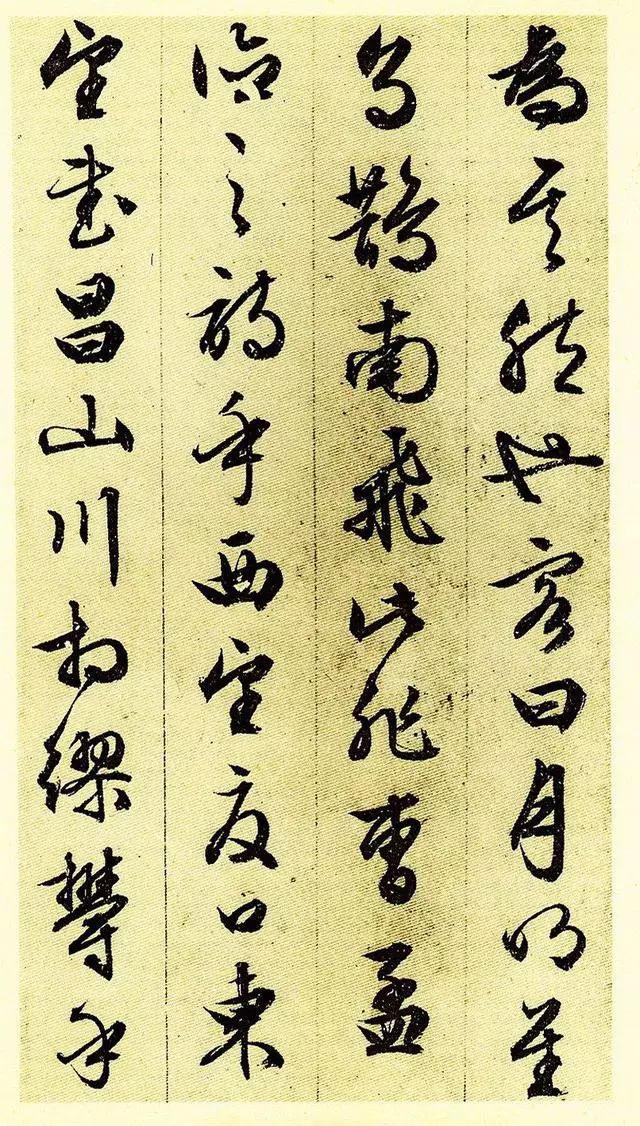 為其然也客曰月明星
烏鵲南飛此非曹孟
德之詩乎西望夏口東
望武昌山川相繆鬱乎